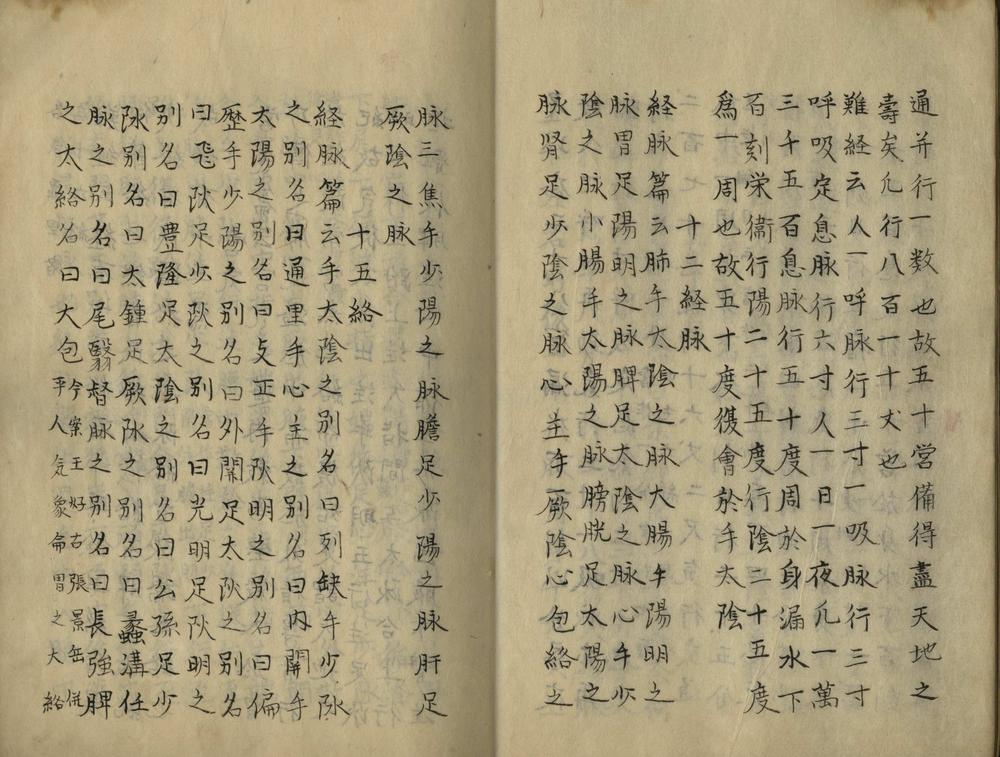 通并行一数也故五十営備得盡天地之
壽矣凢行八百一十丈也
難経云人一呼脉行三寸一吸脉行三寸
呼吸定息脉行六寸人一日一夜凢一萬
三千五百息脉行五十度周於身漏水下
百刻栄衞行陽二十五度行陰二十五度
爲一周也故五十度復會於手太陰
十二経脉
経脉篇云肺手太陰之脉大腸手陽明之
脉胃足陽明之脉脾足太陰之脉心手少
陰之脉小腸手太陽之脉膀胱足太陽之
脉肾足少陰之脉心主手厥陰心包絡之
脉三焦手少陽之脉膽足少陽之脉肝足
厥陰之脉
十五絡
経脉篇云手太陰之别名曰列缺手少阥
之别名曰通里手心主之别名曰内関手
太陽之别名曰支正手阦明之别名曰偏
歴手少陽之别名曰外関足太阦之别名
曰飛阦足少阦之别名曰光明足阦明之
别名曰豊隆足太陰之别名曰公孫足少
阥别名曰太鍾足厥阥之别名曰蠡溝任
脉之别名曰尾翳督脉之别名曰長強脾
之大絡名曰大包今案王好古張景岳併
平人気象侖胃之大絡